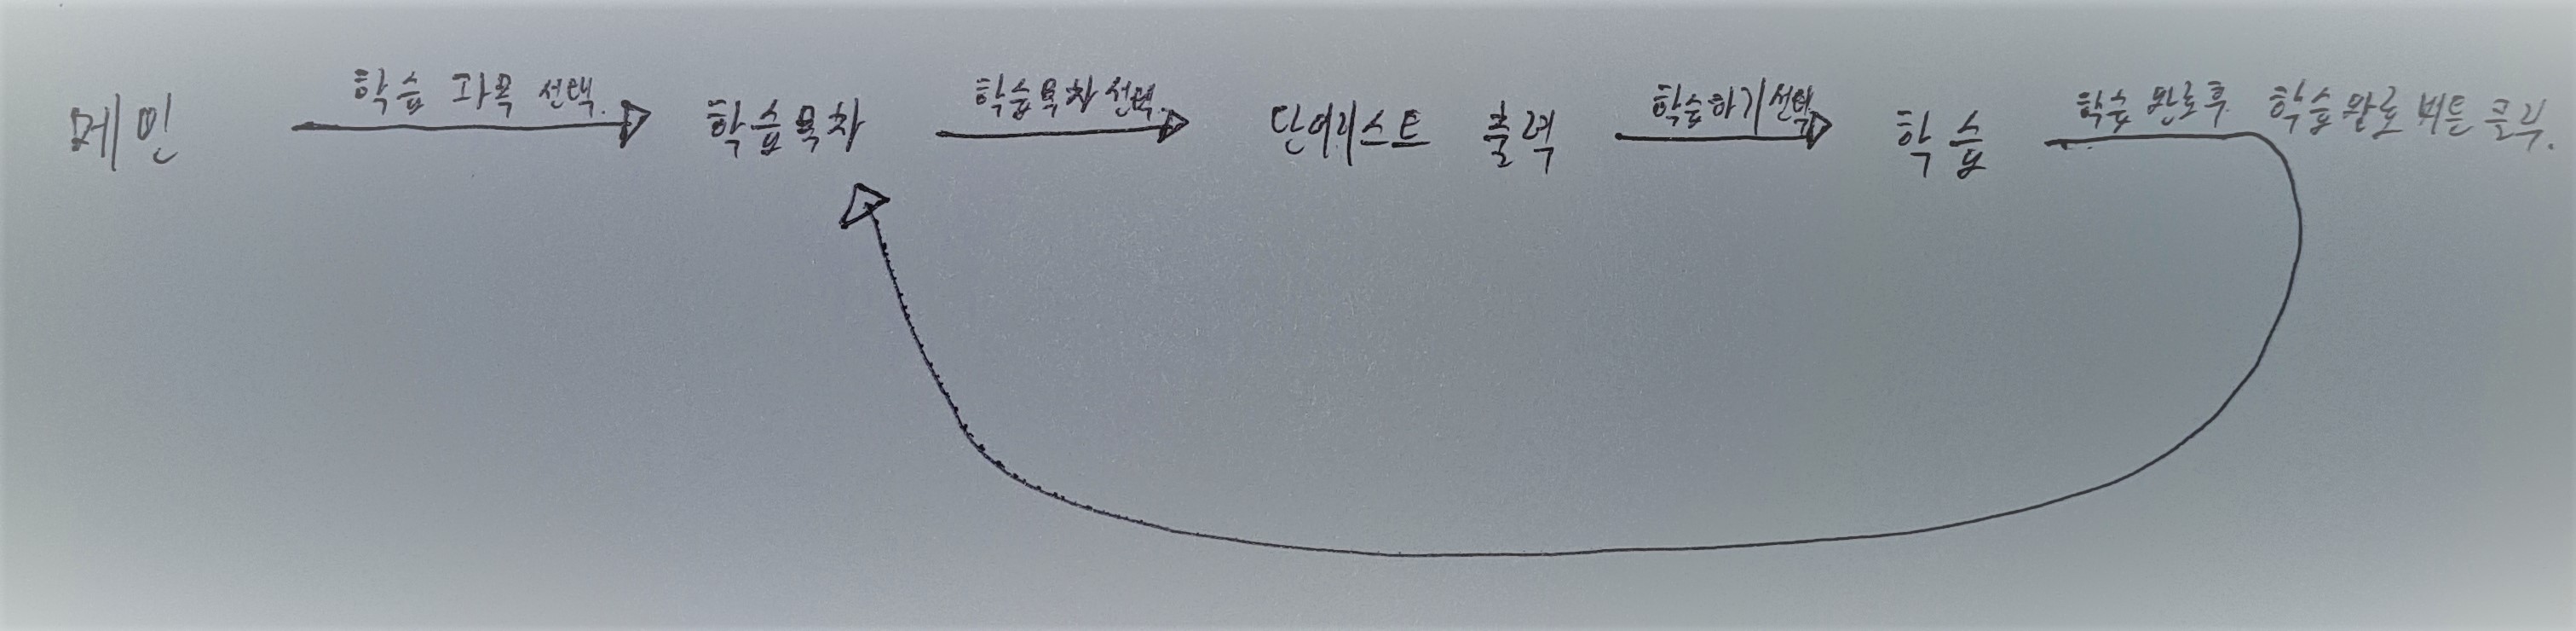 메인
학습 과목 선택.
학습목차
학습목차 선택.
단어리스트 출력
학습하기 선택
학습
학습 완료후 학습완료 버튼 클릭.